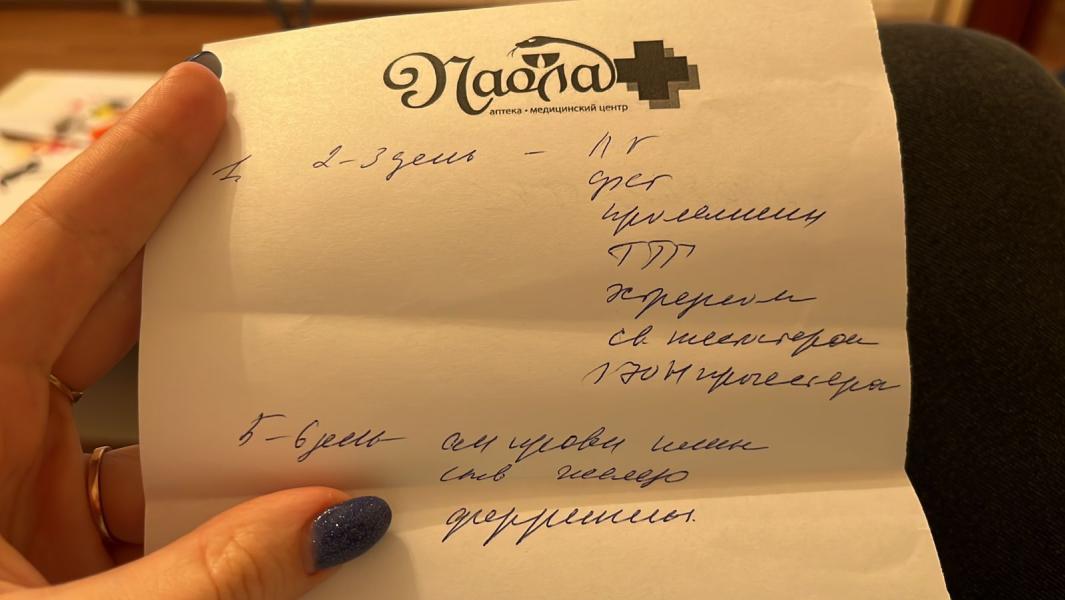 Паола
аптека • медицинский центр
1. 2-3 день - ЛГ
фсг
пролактин
ТТГ
эстрадиол
св. тестостерон
17ОН прогестерон
5-6 день ан крови клин
сыв железо
ферритин.